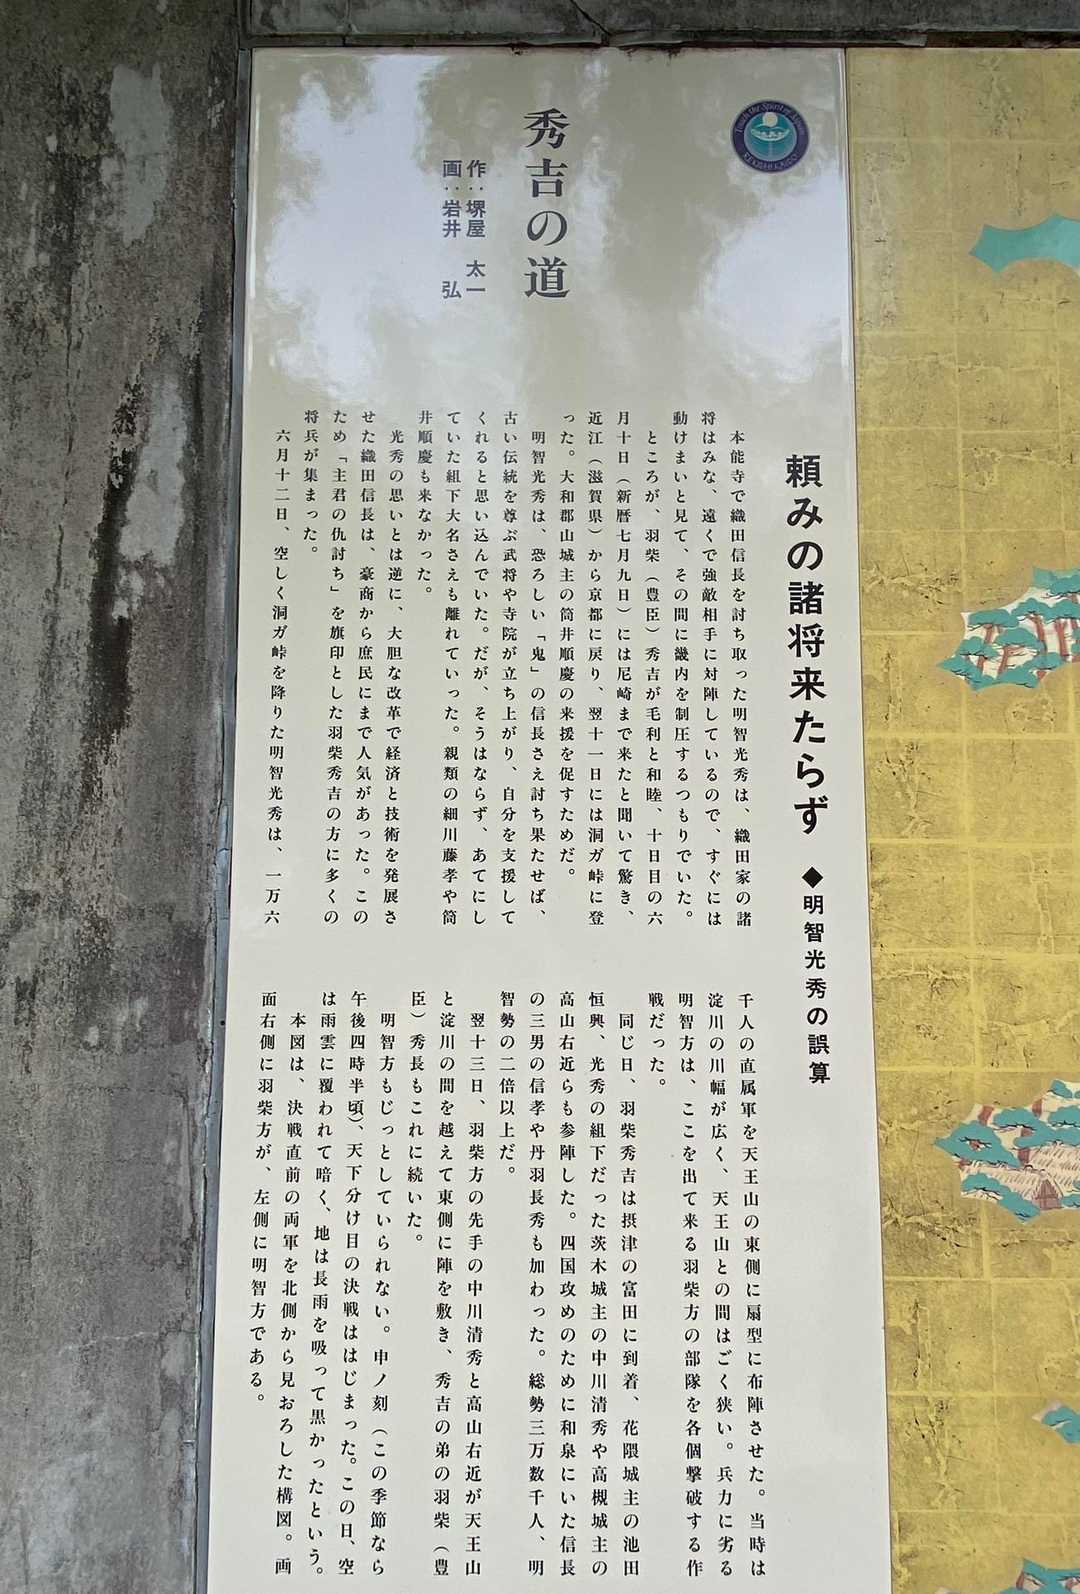 Touch the Spirit of Japan
REKISHI KAIDO
頼みの諸将来たらず ◆明智光秀の誤算
秀吉の道
作:堺屋 太一
画:岩井 弘
本能寺で織田信長を討ち取った明智光秀は、織田家の諸
将はみな、遠くで強敵相手に対陣しているので、すぐには
動けまいと見て、その間に畿内を制圧するつもりでいた。
ところが、羽柴(豊臣)秀吉が毛利と和睦、十日目の六
月十日(新暦七月九日)には尼崎まで来たと聞いて驚き、
近江(滋賀県)から京都に戻り、翌十一日には洞ガ峠に登
った。大和郡山城主の筒井順慶の来援を促すためだ。
明智光秀は、恐ろしい「鬼」の信長さえ討ち果たせば、
古い伝統を尊ぶ武将や寺院が立ち上がり、自分を支援して
くれると思い込んでいた。だが、そうはならず、あてにし
ていた組下大名さえも離れていった。親類の細川藤孝や筒
井順慶も来なかった。
光秀の思いとは逆に、大胆な改革で経済と技術を発展さ
せた織田信長は、豪商から庶民にまで人気があった。この
ため「主君の仇討ち」を旗印とした羽柴秀吉の方に多くの
将兵が集まった。
六月十二日、空しく洞ガ峠を降りた明智光秀は、一万六
千人の直属軍を天王山の東側に扇型に布陣させた。当時は
淀川の川幅が広く、天王山との間はごく狭い。兵力に劣る
明智方は、ここを出て来る羽柴方の部隊を各個撃破する作
戦だった。
同じ日、羽柴秀吉は摂津の富田に到着、花隈城主の池田
恒興、光秀の組下だった茨木城主の中川清秀や高槻城主の
高山右近らも参陣した。四国攻めのために和泉にいた信長
の三男の信孝や丹羽長秀も加わった。総勢三万数千人、明
智勢の二倍以上だ。
翌十三日、羽柴方の先手の中川清秀と高山右近が天王山
と淀川の間を越えて東側に陣を敷き、秀吉の弟の羽柴(豊
臣)秀長もこれに続いた。
明智方もじっとしていられない。申ノ刻(この季節なら
午後四時半頃)、天下分け目の決戦ははじまった。この日、空
は雨雲に覆われて暗く、地は長雨を吸って黒かったという。
本図は、決戦直前の両軍を北側から見おろした構図。画
面右側に羽柴方が、左側に明智方である。